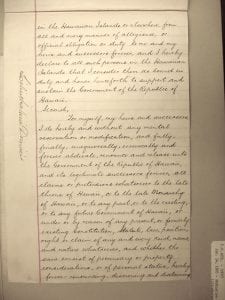 in the Hawaiian Islands or elsewhere from
all and every manner of allegiance, or
official obligation or duty to me and my
heirs and successors forever, and I hereby
declare to all such persons in the Hawaiian
Islands that I consider them as bound in
duty and honor henceforth to support and
sustain the Government of the Republic of
Hawaii.
Second,
For myself, my heirs and successors
I do hereby and without any mental
reservation or modification, and fully,
finally, unequivocally, irrevocably and
forever abdicate, renounce and release unto
the Government of the Republic of Hawaii,
and its legitimate successors forever all
claims or pretensions whatsoever to the late
throne of Hawaii, or to the late Monarchy
of Hawaii, or to any past, or to the existing,
or to any future Government of Hawaii, or
under or by reason of any present, or formerly
existing Constitution, Statute, law, position,
right or claim of any and every kind, name
and nature whatsoever, and whether the
same consist of pecuniary or property
considerations, or of personal status, hereby
forever renouncing, disowning and disclaiming
Liliuokalani Dominis